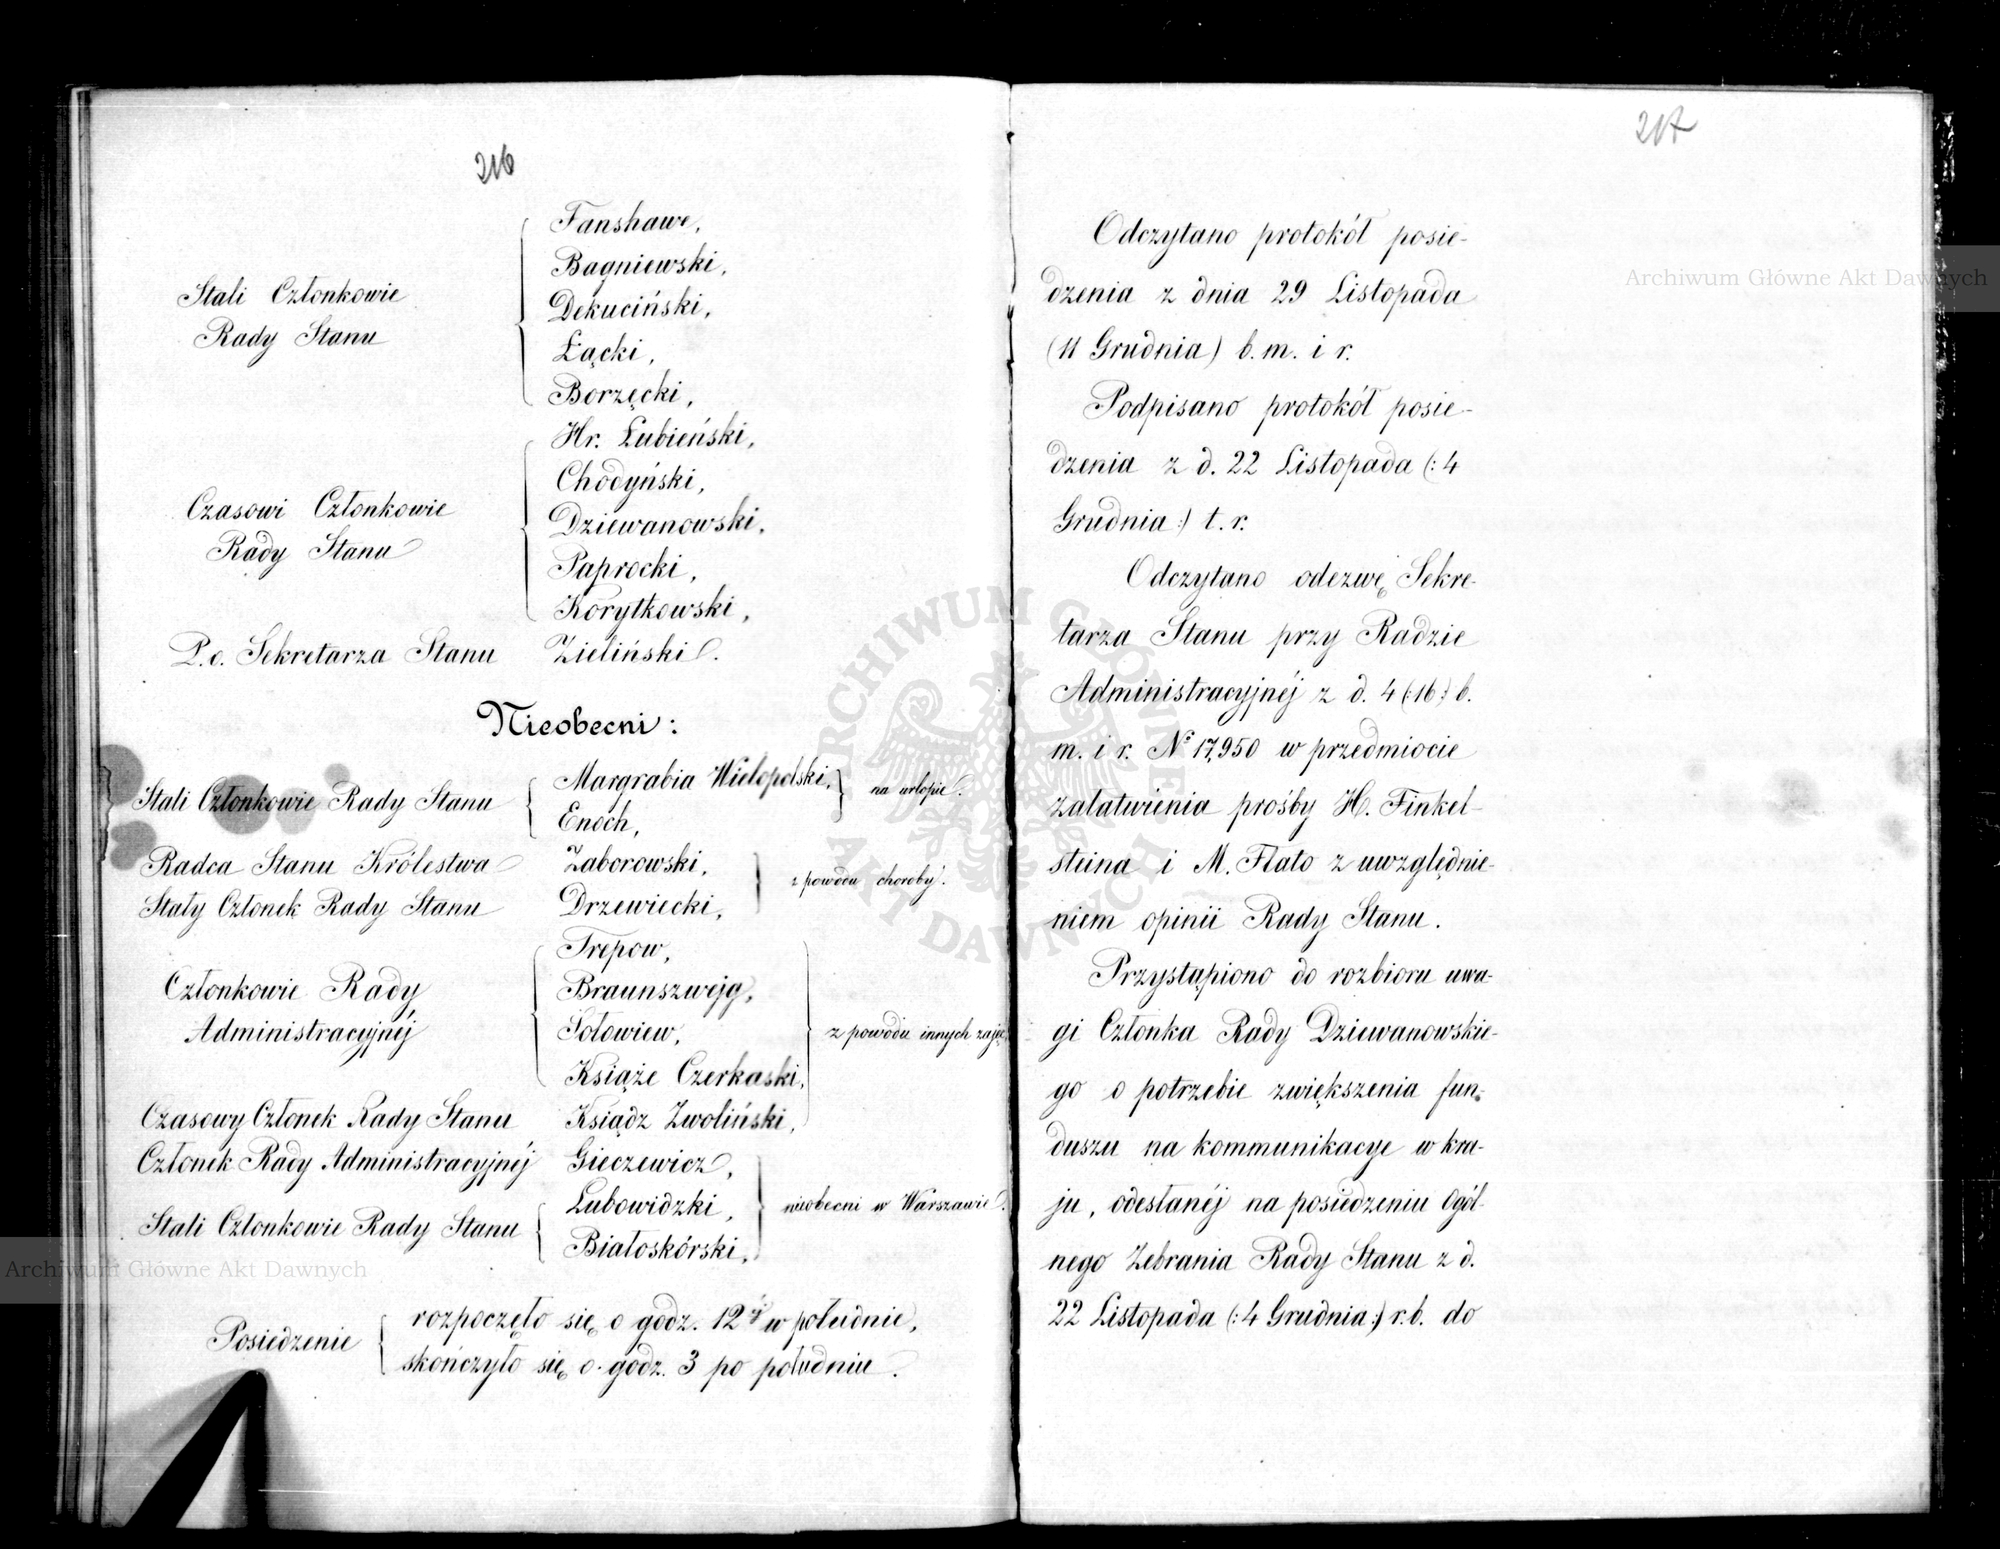 216
Stali Członkowie
Rady Stanu
Fanshawe,
Bagniewski,
Dekuciński,
Łącki,
Borzęcki,
Czasowi Członkowie
Rady Stanu
Hr. Łubieński,
Chodyński,
Dziewanowski,
Paprocki,
Korytkowski,
P.o. Sekretarza Stanu Zieliński.
Nieobecni:
Stali Członkowie Rady Stanu
Margrabia Wielopolski,
Enoch,
na urlopie.
Radca Stanu Królestwa Zaborowski,
Stały Członek Rady Stanu Drzewiecki,
z powodu choroby.
Członkowie Rady
Administracyjnéj
Trepow,
Braunszwejg,
Sołowiew,
Książe Czerkaski,
z powodu innych zaję
Czasowy Członek Rady Stanu Ksiądz Zwoliński,
Członek Rady Administracyjnéj Gieczewicz,
Stali Członkowie Rady Stanu
Lubowidzki,
Białoskórski,
nieobecni w Warszawie.
Posiedzenie
rozpoczęło się o godz. 12éj w południe,
skończyło się o godz. 3 po południu.
217
Odczytano protokół posie-
dzenia z dnia 29 Listopada
(11 Grudnia) b. m. i r.
Podpisano protokół posie-
dzenia z d. 22 Listopada (: 4
Grudnia :) t. r.
Odczytano odezwę Sekre-
tarza Stanu przy Radzie
Administracyjnéj z d. 4 (:16:) b.
m. i r. No 17,950 w przedmiocie
załatwienia prośby H. Finkel-
steina i M. Flato z uwzględnie-
niem opinii Rady Stanu.
Przystąpiono do rozbioru uwa-
gi Członka Rady Dziewanowskie-
go o potrzebie zwiększenia fun-
duszu na kommunikacye w kra-
ju, odesłanéj na posiedzeniu Ogól-
nego Zebrania Rady Stanu z d.
22 Listopada (: 4 Grudnia :) r. b. do
Archiwum Główne Akt Dawnych
Archiwum Główne Akt Dawnych
ARCHIWUM GŁÓWNE
AKT DAWNYCH